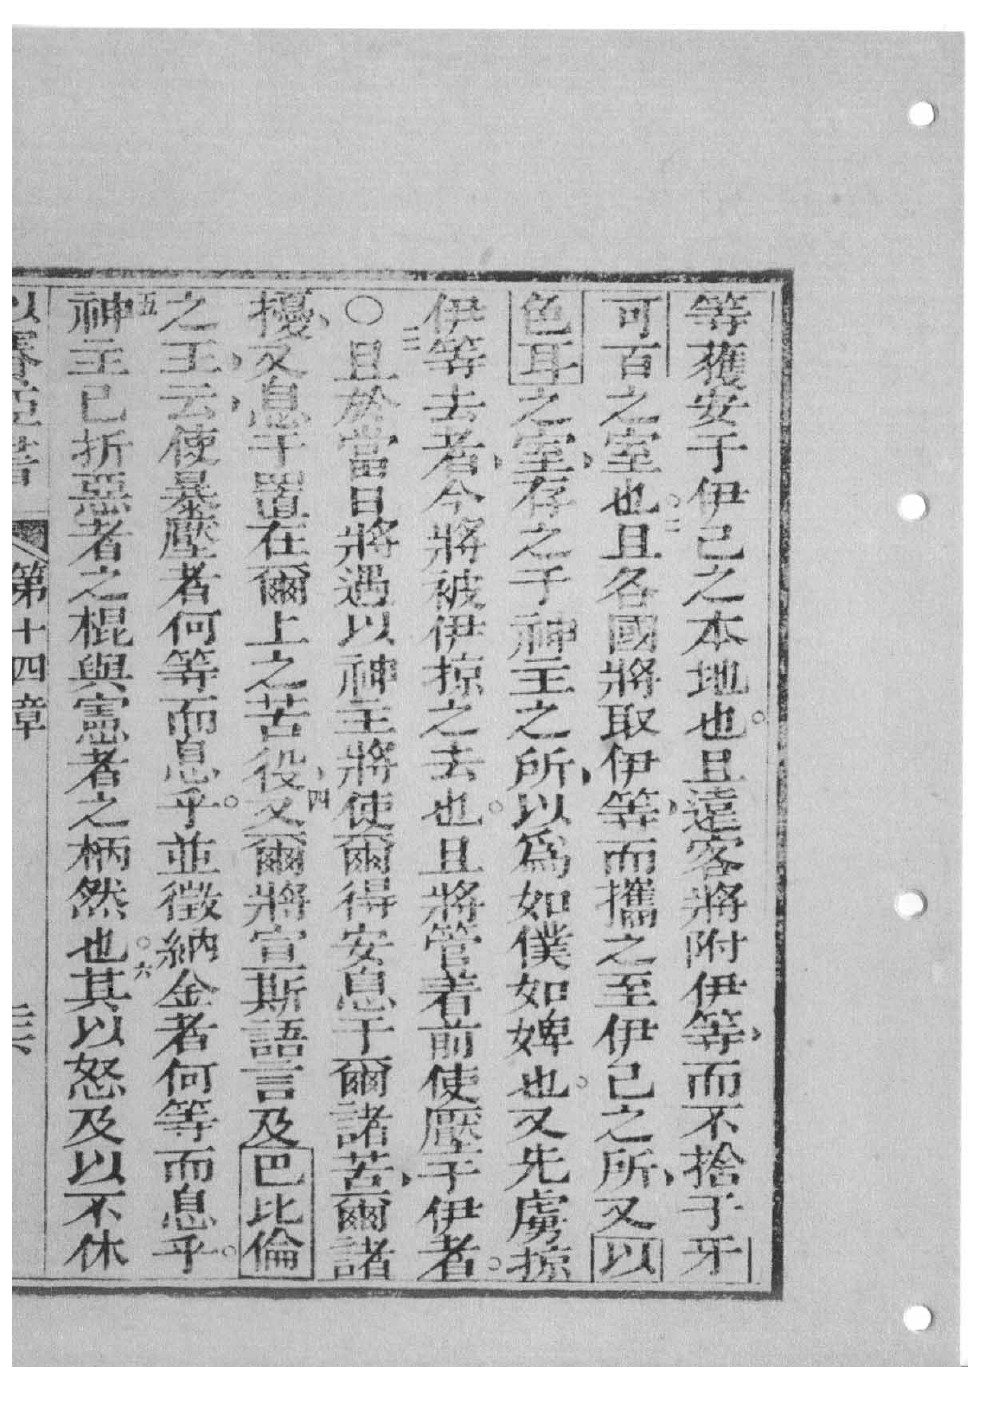 等獲安于伊己之本地也。且遠客將附伊等、而不捨于牙
可百之室也。二且各國將取伊等、而攜之至伊己之所、又以
色耳之室、存之于神主之所、以爲如僕如婢也。又先虜掠
伊等去者、今將被伊掠之去也。且將管着前使壓于伊者。
○三且於當日將遇以神主將使爾得安息于爾諸苦、爾諸
擾、又息于置在爾上之苦役、四又爾將宣斯語言及巴比倫
之王、云、使暴壓者何等而息乎。並徵納金者何等而息乎。
五神主已折惡者之棍與憲者之柄然也。六其以怒及以不休
以賽亞書 第十四章